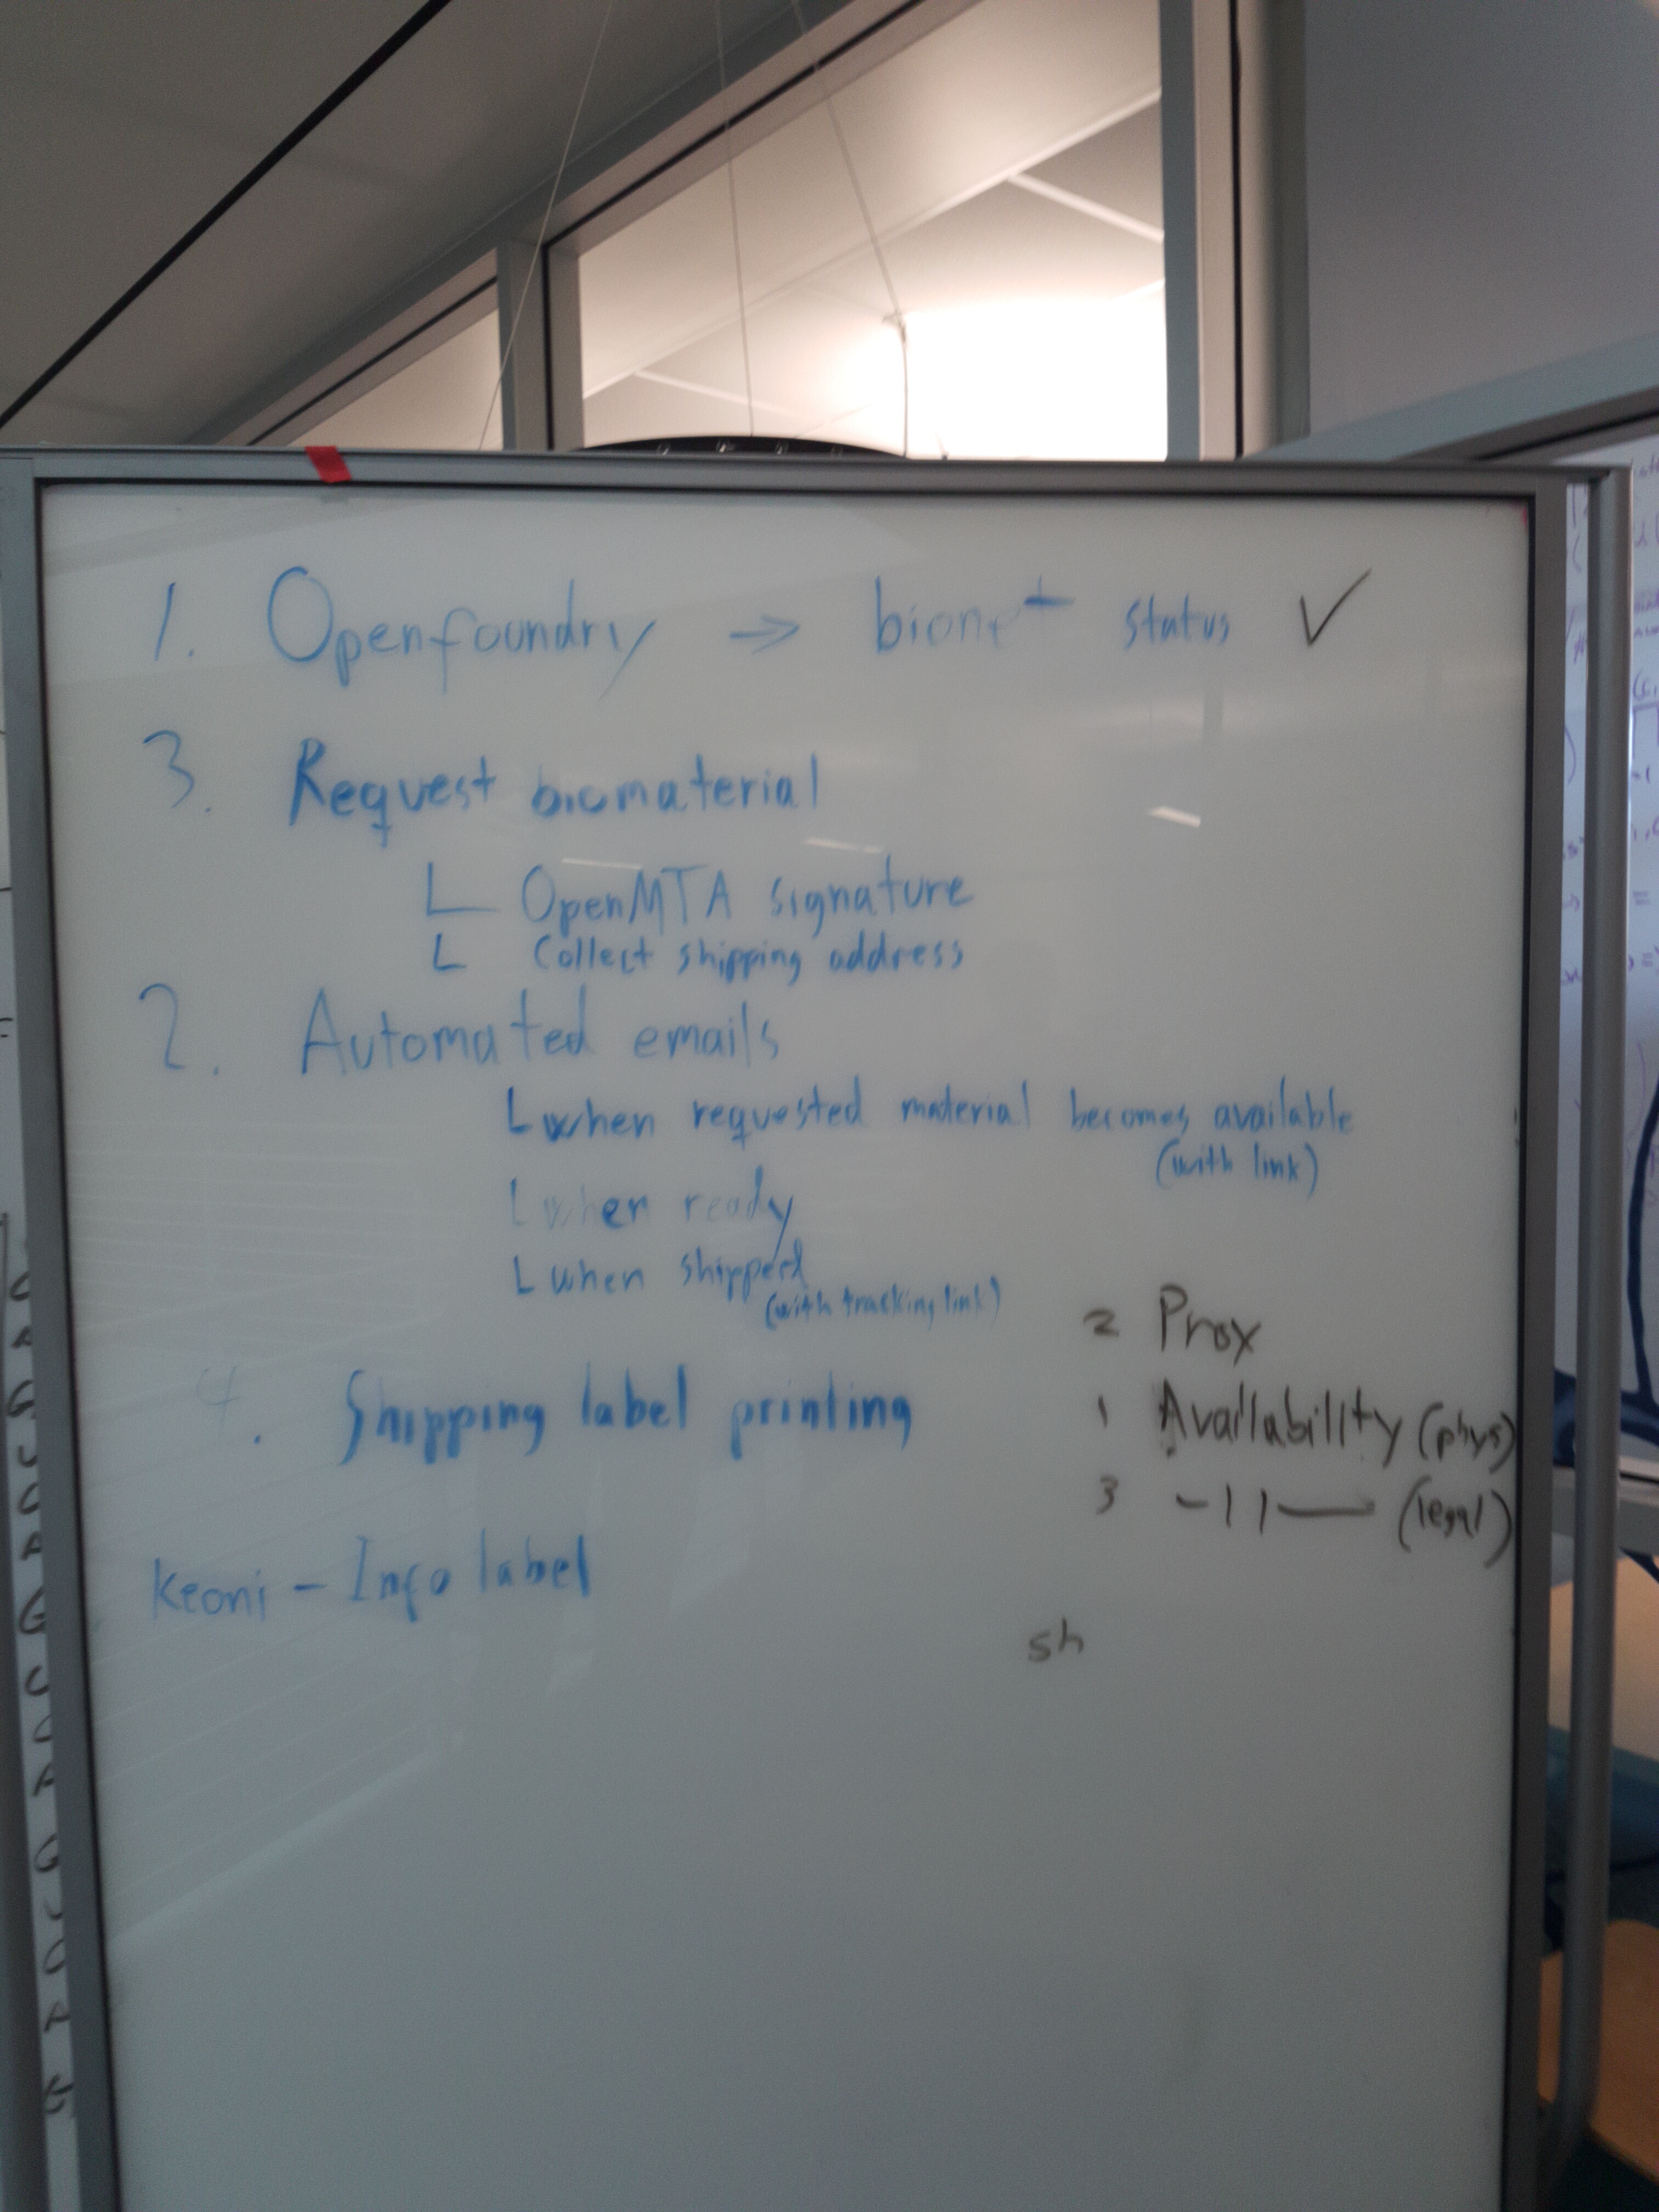 1. Openfoundry → bionet status ✓
3. Request biomaterial
L OpenMTA signature
L Collect shipping address
2. Automated emails
L when requested material becomes available
(with link)
L when ready
L when shipped
(with tracking link)
4. Shipping label printing
Keoni - Info label
2 Prox
1 Availability (phys)
3 -||- (legal)
sh